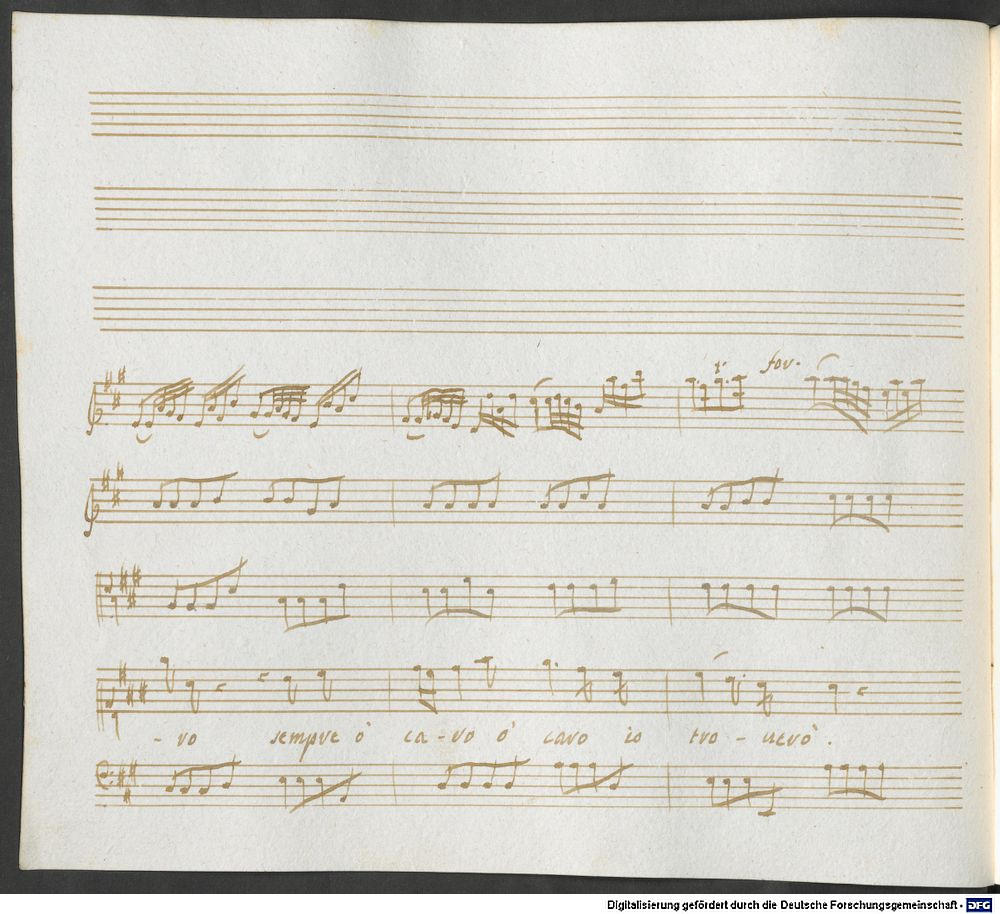 for.
- ro sempre ò ca - ro ò caro io tro - uerò .
Digitalisierung gefördert durch die Deutsche Forschungsgemeinschaft - DFG